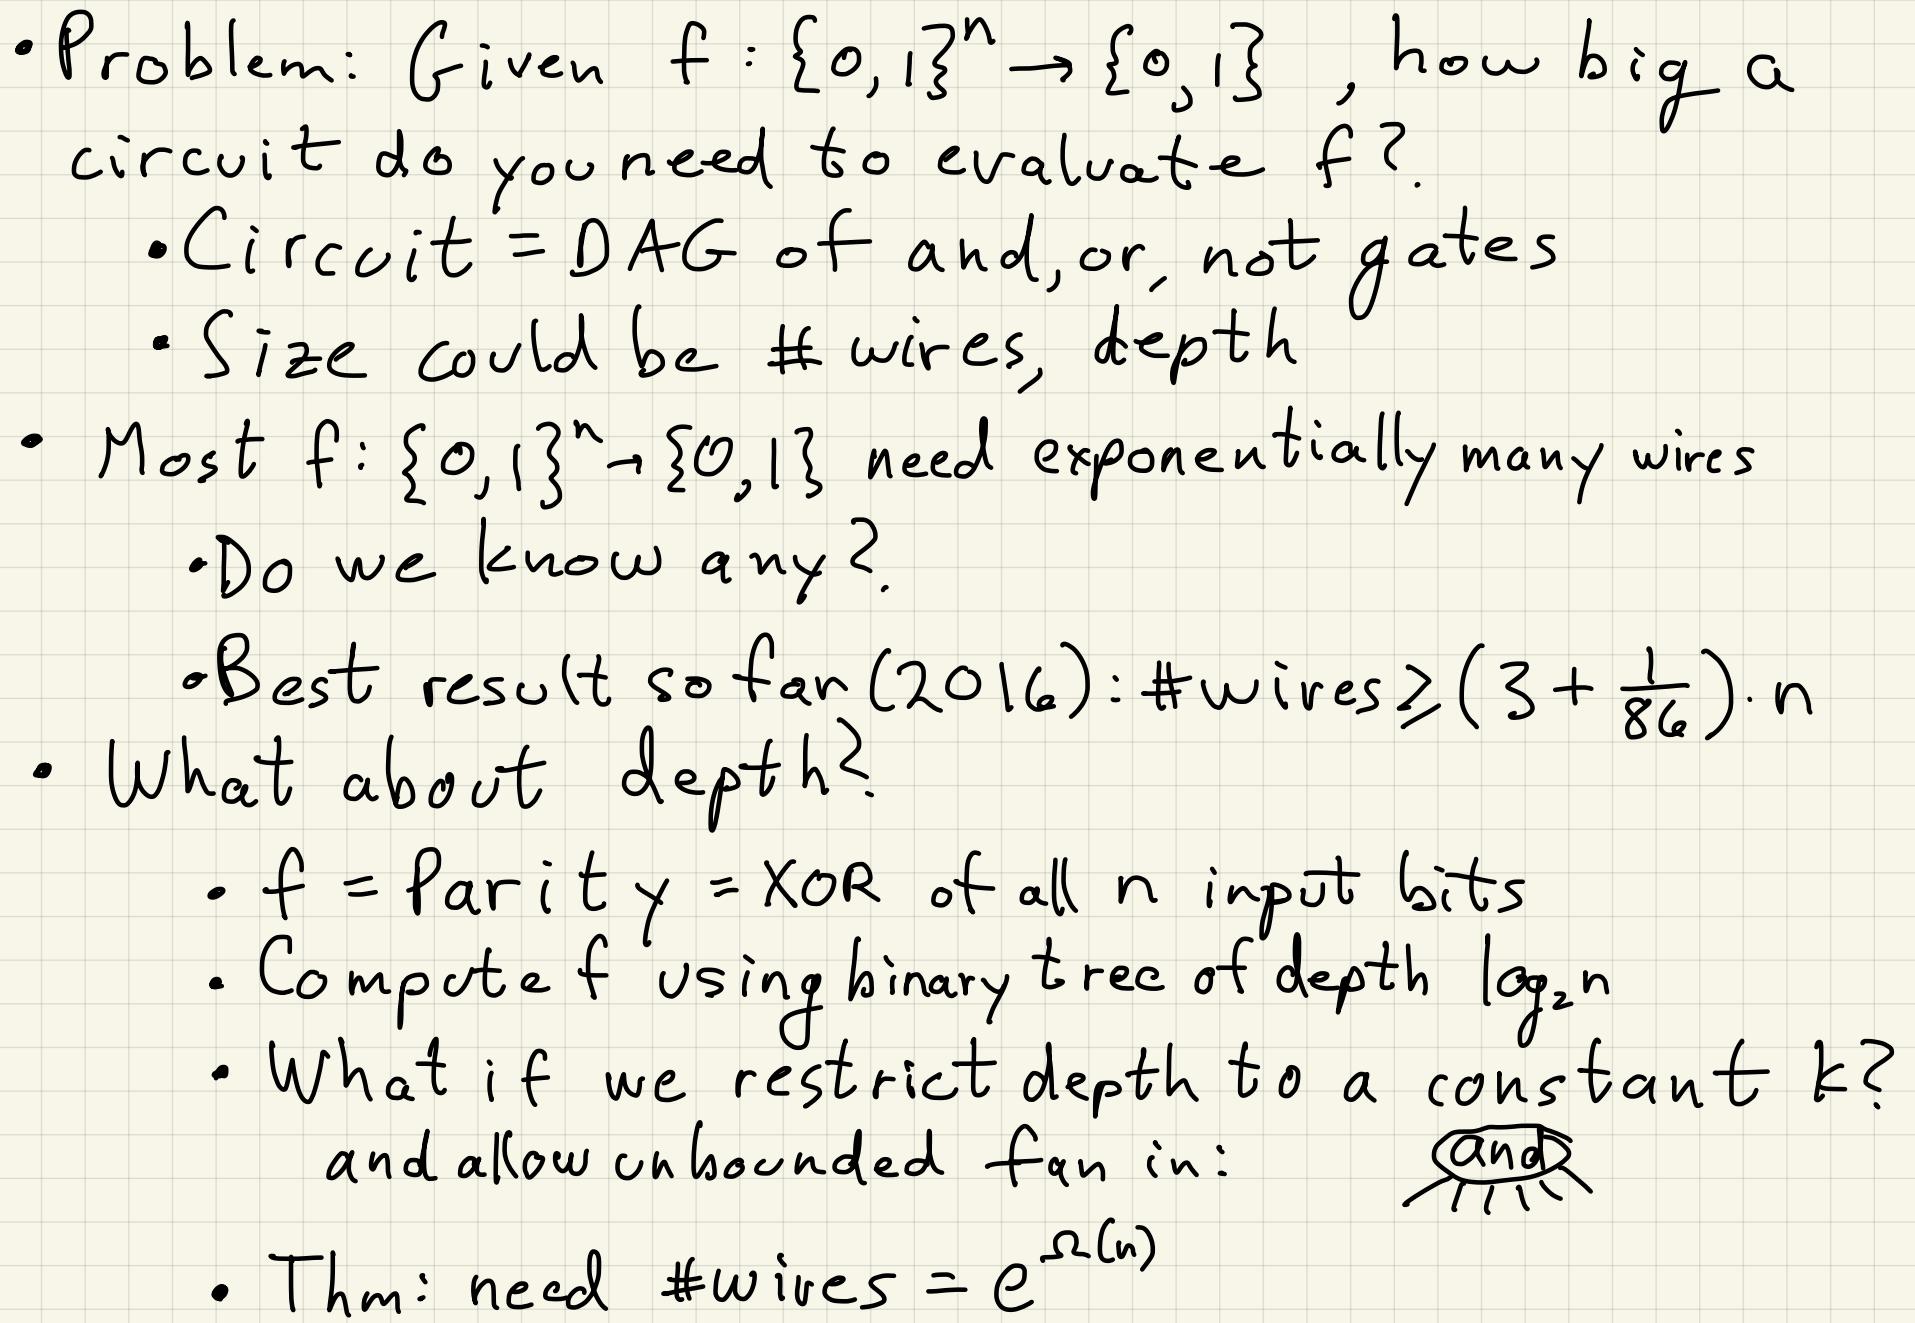 • Problem: Given f: {0,1}ⁿ → {0,1}, how big a
circuit do you need to evaluate f?
• Circuit = DAG of and, or, not gates
• Size could be # wires, depth
• Most f: {0,1}ⁿ → {0,1} need exponentially many wires
• Do we know any?
• Best result so far (2016): #wires ≥ (3 + 1/86) · n
• What about depth?
• f = Parity = XOR of all n input bits
• Compute f using binary tree of depth log₂n
• What if we restrict depth to a constant k?
and allow unbounded fan in: and
• Thm: need #wires = e^Ω(n)